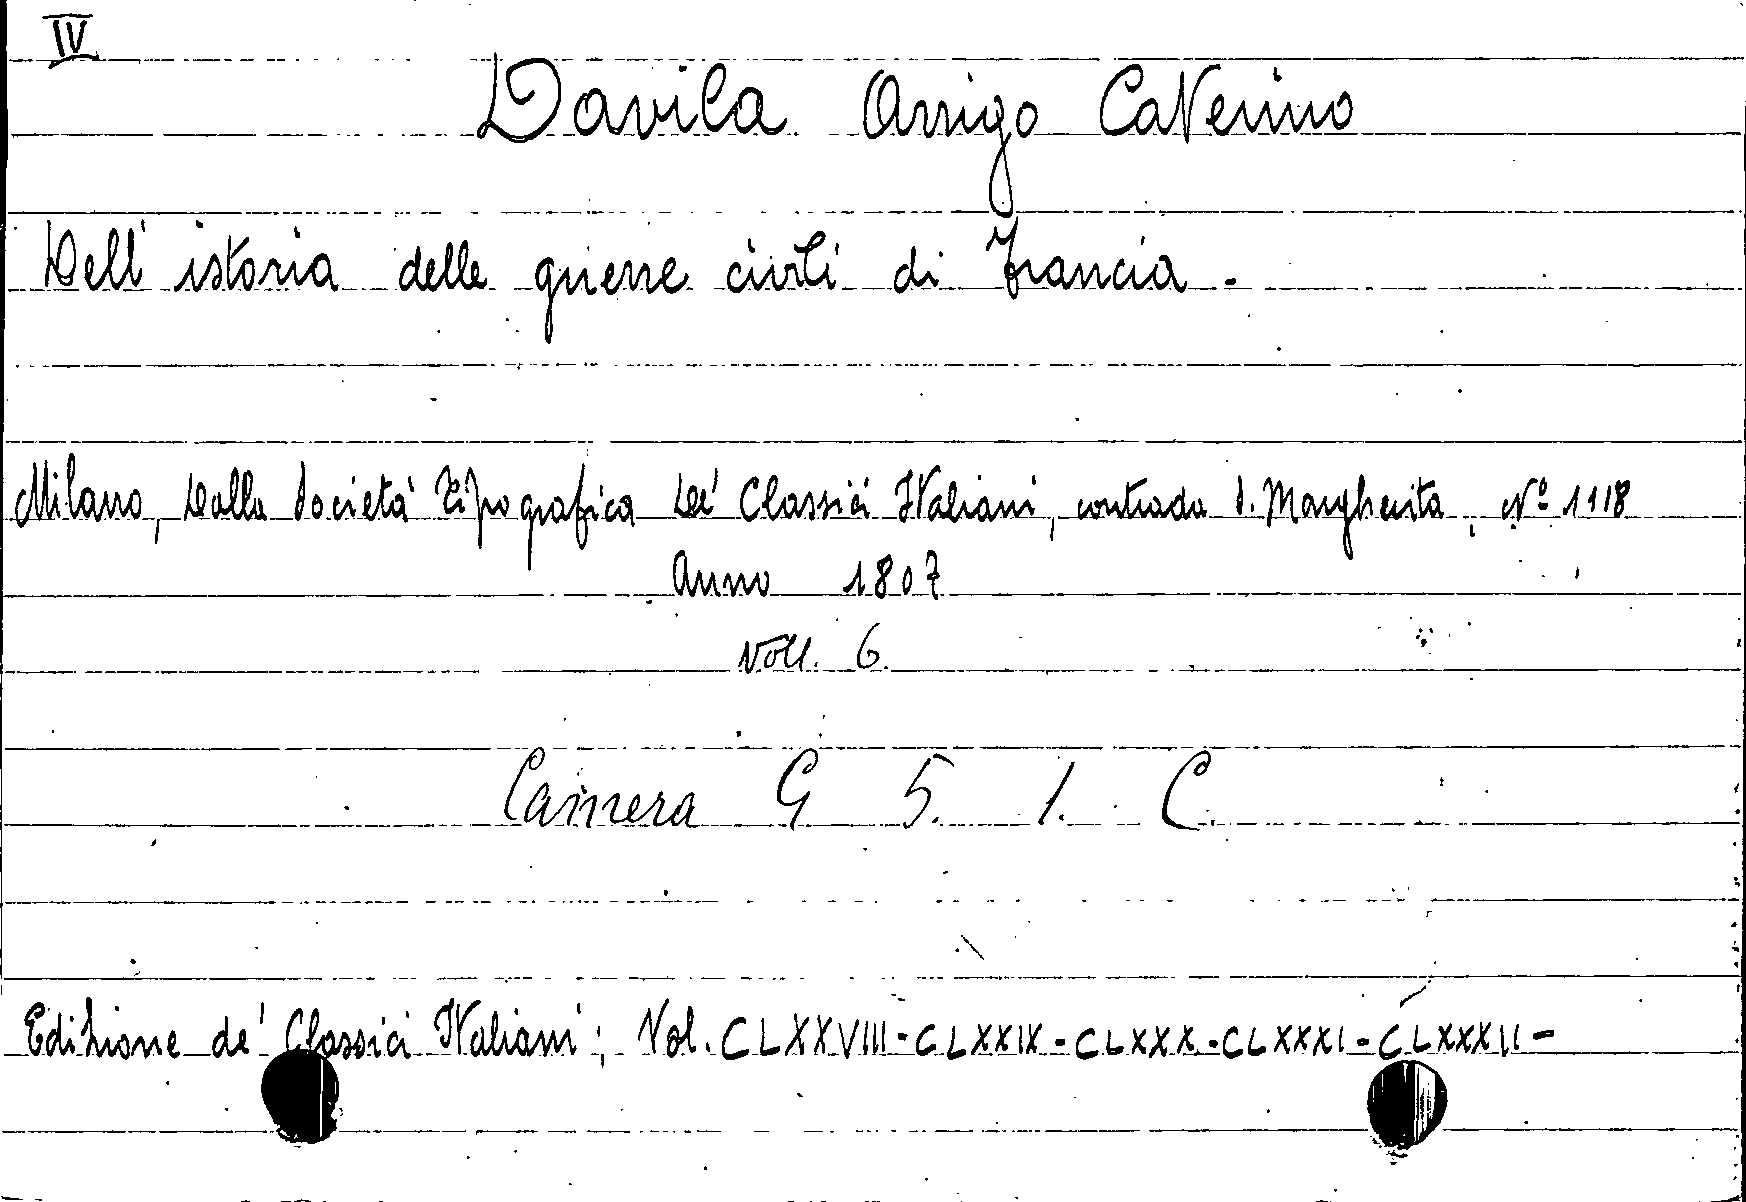 IV
Davila Arrigo Caterino
Dell'istoria delle guerre civili di Francia -
Milano, Dalla Società Tipografica De' Classici Italiani, contrada S. Margherita, N° 1118
Anno 1807
Voll. 6.
Camera G 5. 1. C.
Edizione de' Classici Italiani; Vol. CLXXVIII-CLXXIX-CLXXX-CLXXXI-CLXXXII-